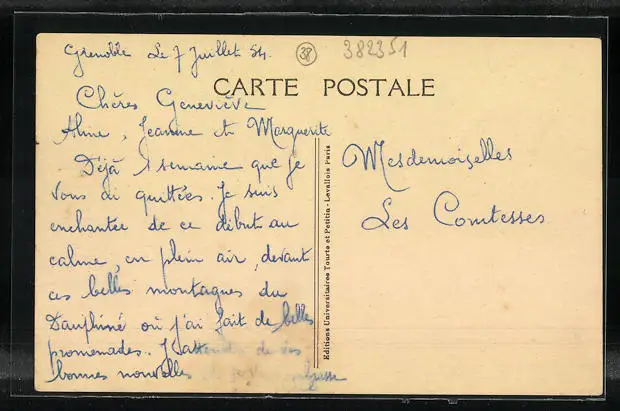 Grenoble Le 7 Juillet 54.
38
382351
CARTE POSTALE
Chères Geneviève
Aline, Jeanne et Marguerite
Déjà 1 semaine que je
vous ai quittées. Je suis
enchantée de ce début au
calme, en plein air, devant
ces belles montagnes du
Dauphiné où j'ai fait de belles
promenades. J'attends de vos
bonnes nouvelles
Mesdemoiselles
Les Comtesses
Editions Universitaires Tourte et Petitin - Levallois Paris